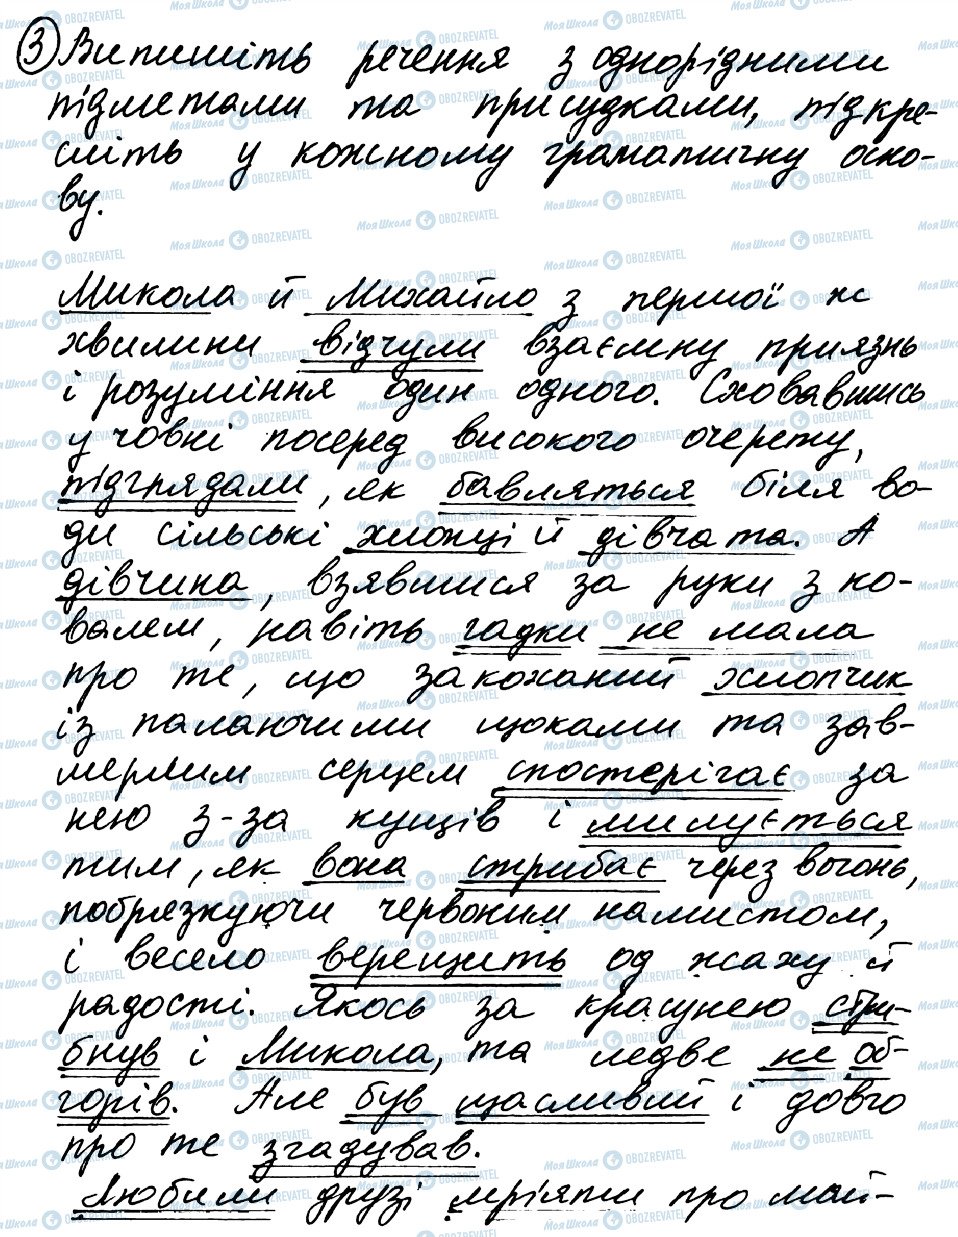 3 Випишіть речення з однорідними
підметами та присудками, підкре-
сліть у кожному граматичну осно-
ву.
Микола й Михайло з першої ж
хвилини відчули взаємну приязнь
і розуміння один одного. Сховавшись
у човні посеред високого очерету,
підглядали, як бавляться біля во-
ди сільські хлопці й дівчата. А
дівчина, взявшися за руки з ко-
валем, навіть гадки не мала
про те, що закоханий хлопчик
із палаючими щоками та зав-
мерлим серцем спостерігає за
нею з-за кущів і милується
тим, як вона стрибає через вогонь,
побрязкуючи червоним намистом,
і весело верещить од жаху й
радості. Якось за красунею стри-
бнув і Микола, та ледве не об-
горів. Але був щасливий і довго
про те згадував.
Любили друзі мріяти про май-